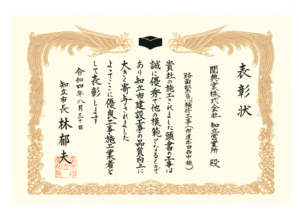 表彰状
關興業株式会社 知立営業所 殿
路面緊急補修工事(市道本田西中線)
貴社の施工されました頭書の工事は
誠に優秀で他の模範となるもので
あり知立市建設工事の品質向上に
大きく寄与されました
よってここに優良工事施工業者と
して表彰します
令和四年八月三十日
知立市長 林郁夫